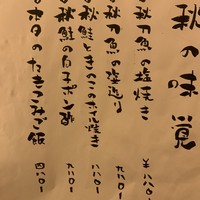 秋の味覚
秋刀魚の塩焼き ¥八八〇ー
秋刀魚の造り 九八〇ー
秋鮭ときのこのホイル焼き 八八〇ー
秋鮭の白子ポン酢 九八〇ー
のたきこみご飯 四八〇ー